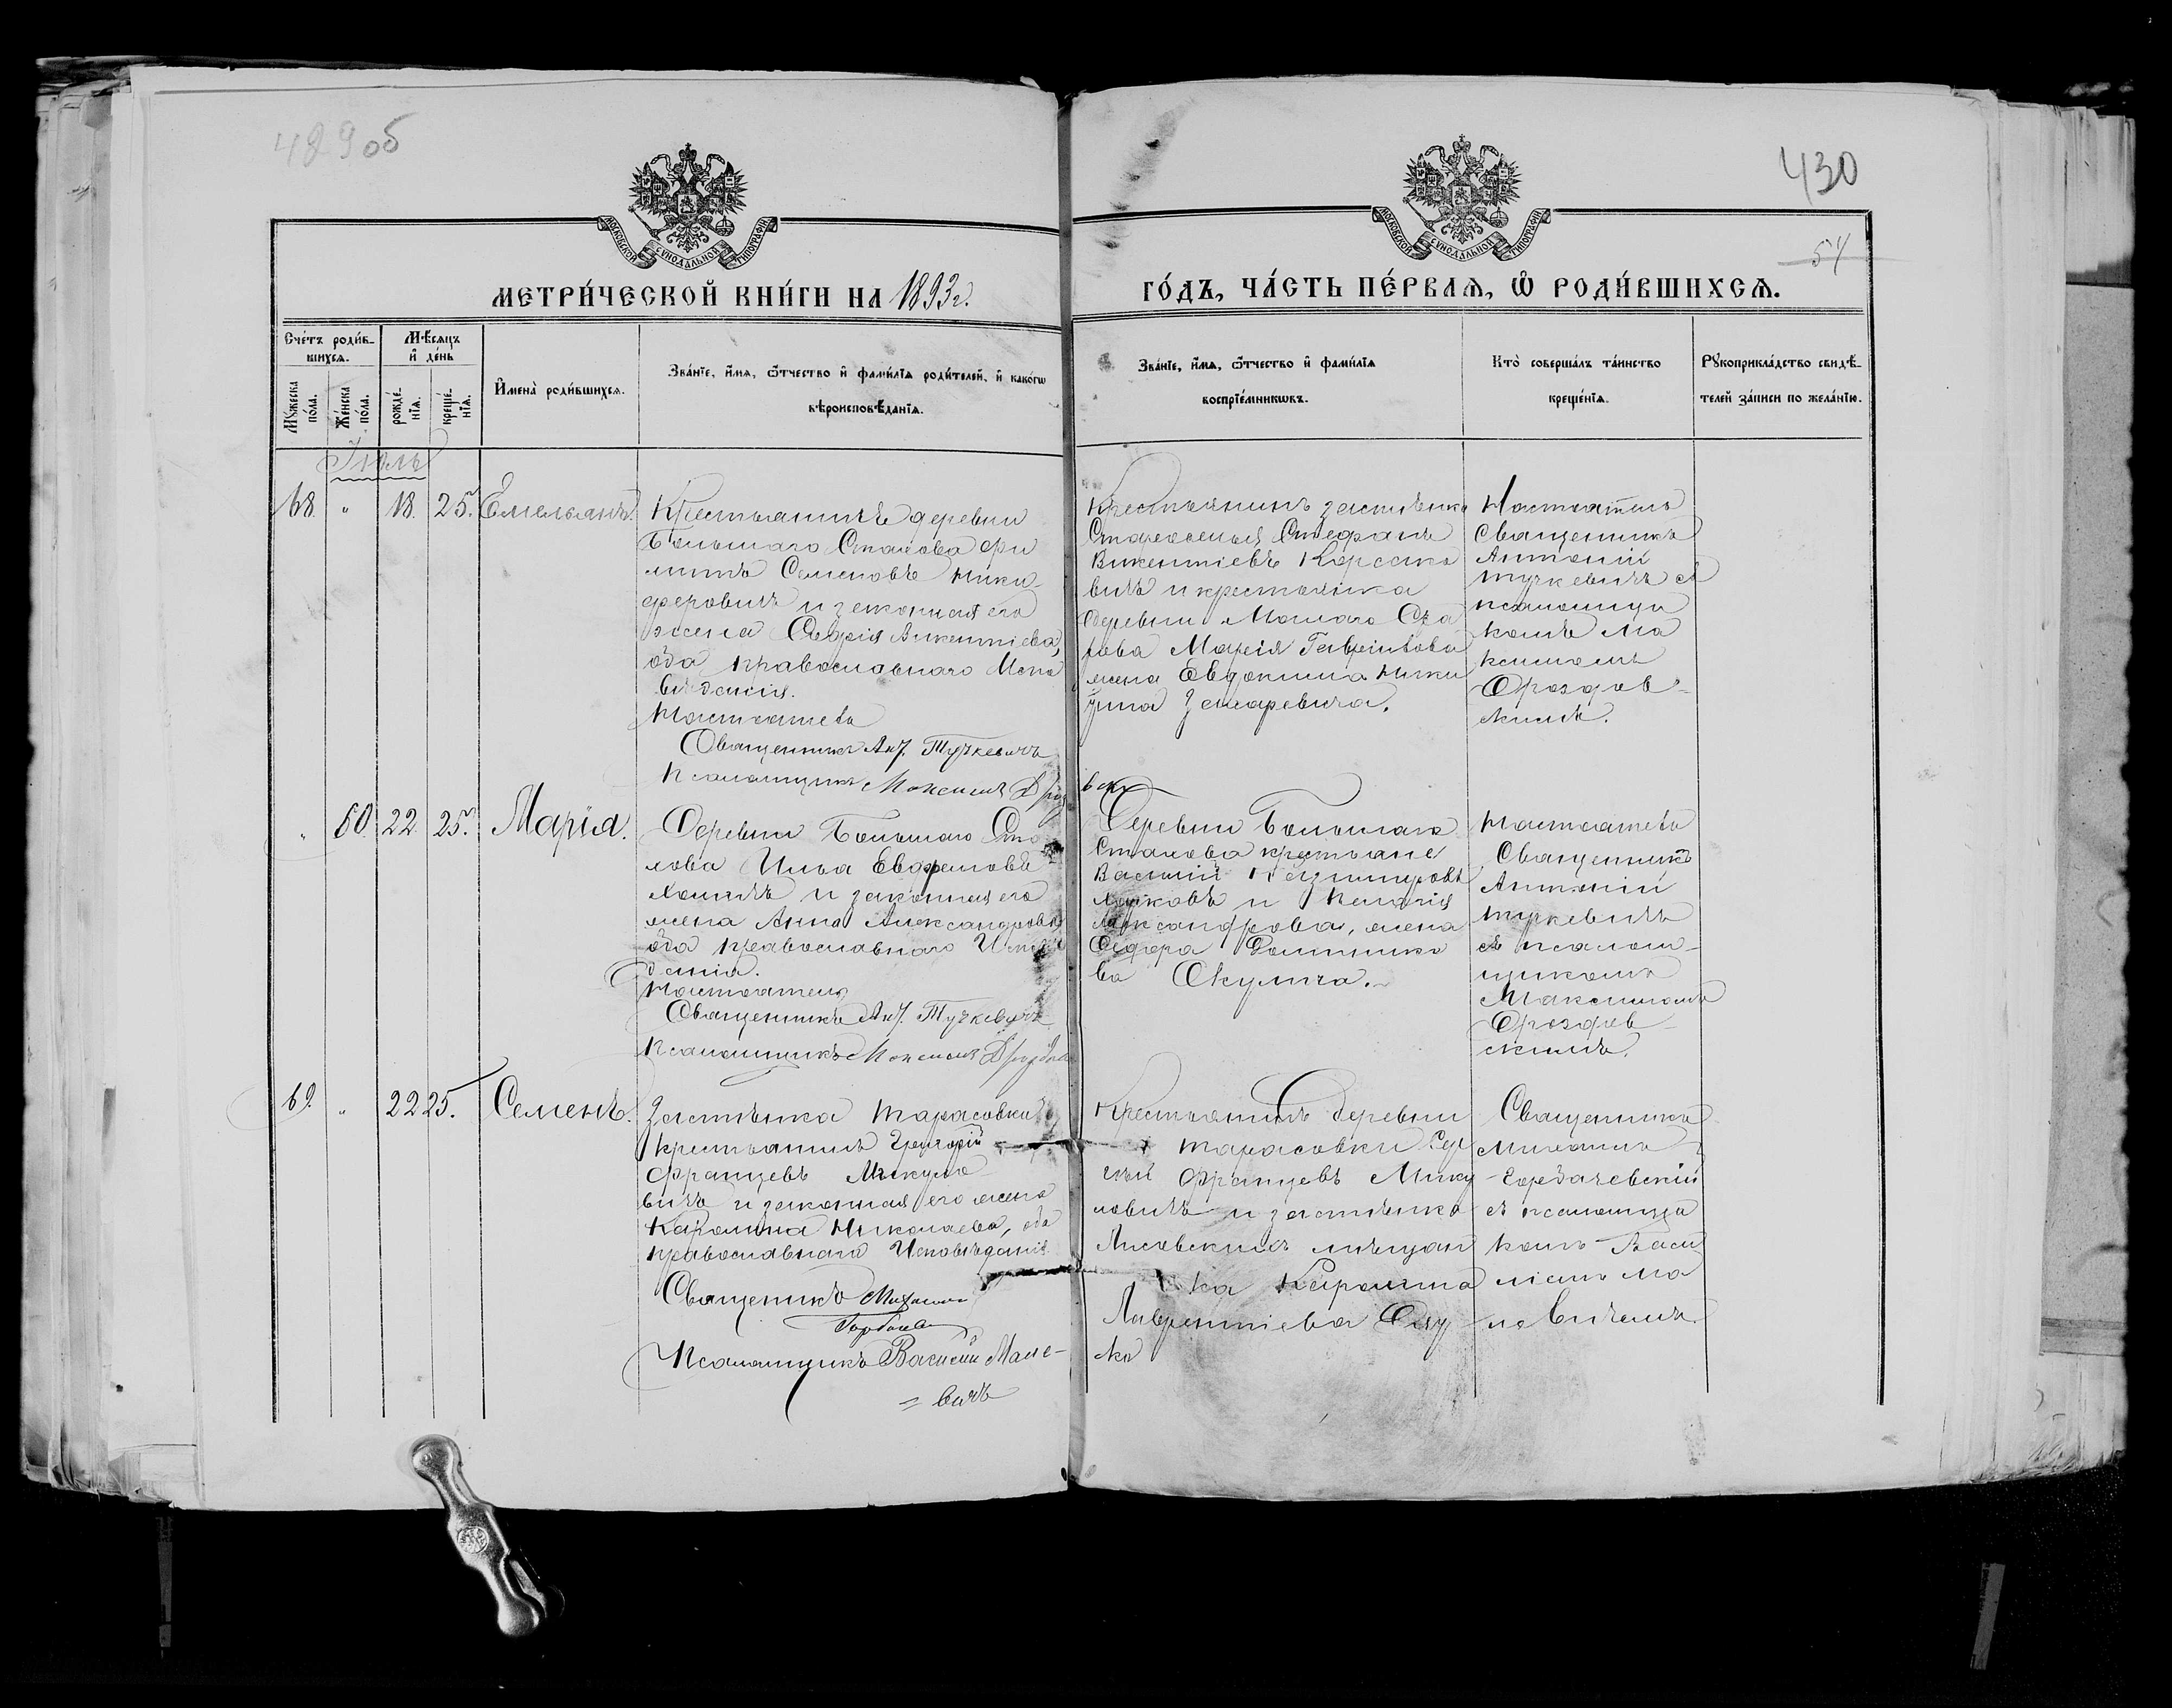 429 об
430
54
МОСКОВСКОЙ СУНОДАЛЬНОЙ ТИПОГРАФІИ
МОСКОВСКОЙ СУНОДАЛЬНОЙ ТИПОГРАФІИ
МЕТРИ́ЧЕСКОЙ КНИ́ГИ НА 1893 г.
ГО́ДЪ, ЧА́СТЬ ПЕ́РВАѦ, Ѽ РОДИ́ВШИХСѦ.
Сче́тъ роди́в-
шихсѧ.
Мꙋжеска по́ла.
Же́нска по́ла.
Мѣ́сѧцъ
и҆ де́нь
рожде́-
нїѧ.
креще́-
нїѧ.
И҆мена̀ роди́вшихсѧ.
Зва́нїе, и҆́мѧ, ѻ҆́тчество и҆ фами́лїѧ роди́телей, и҆ како́гѡ
вѣроисповѣ́данїѧ.
Зва́нїе, и҆́мѧ, ѻ҆́тчество и҆ фами́лїѧ
воспрїе́мникѡвъ.
Кто̀ соверша́лъ та́инство
креще́нїѧ.
Рꙋкоприкла́дство свидѣ́-
телей за́писи по жела́нїю.
Іюль
68. " 18. 25. Емельянъ.
Крестьянинъ деревни
Большаго Стахова Фи
липпъ Семеновъ Ники-
феровичъ и законная его
жена Софія Викентіева,
оба православнаго Испо
вѣданія.
Настоятель
Священникъ Ант. Тучкевичъ
Псаломщикъ Максимъ Дроздо
вскій
Крестьянинъ застѣнка
Староселья Стефанъ
Викентіевъ Корсако
вичъ и крестьянка
деревни Малаго Ста
хова Марія Гаврилова
жена Евдокима Ники
Настоятель
Священникъ
Антоній
Тучкевичъ съ
псаломщи
комъ Ма
ксимомъ
Дроздов-
скимъ.
" 50. 22 25. Марія.
Деревни Большаго Ста
хова Илья Евфремовъ
и законная его
жена Анна Александрова
оба православнаго Исповѣ
данія.
Настоятель
Священникъ Ант. Тучкевичъ
Псаломщикъ Максимъ Дроздов
Деревни Большаго
Стахова крестьяне
Василій Казиміровъ
и Пелагія
Александрова, жена
Сидора Доминико
ва Скулича.
Настоятель
Священникъ
Антоній
Тучкевичъ
съ псалом-
щикомъ
Максимомъ
Дроздов-
скимъ.
69. " 22 25. Семенъ.
Застѣнка Тарасовки
крестьянинъ Григорій
Францевъ Микуло
вичъ и законная его жена
Каролина Николаева, оба
православнаго Исповѣданія
Священникъ Михаилъ
Горбачевскій
Псаломщикъ Василій Мале-
= вичъ
Крестьянинъ деревни
Тарасовки Сер
гѣй Францевъ Мику
ловичъ и застѣнка
Лисовскихъ мѣщан
ка Каролина
Лаврентіева
Священникъ
Михаилъ
Горбачевскій
съ псаломщи
комъ Васи
ліемъ Ма
левичемъ.